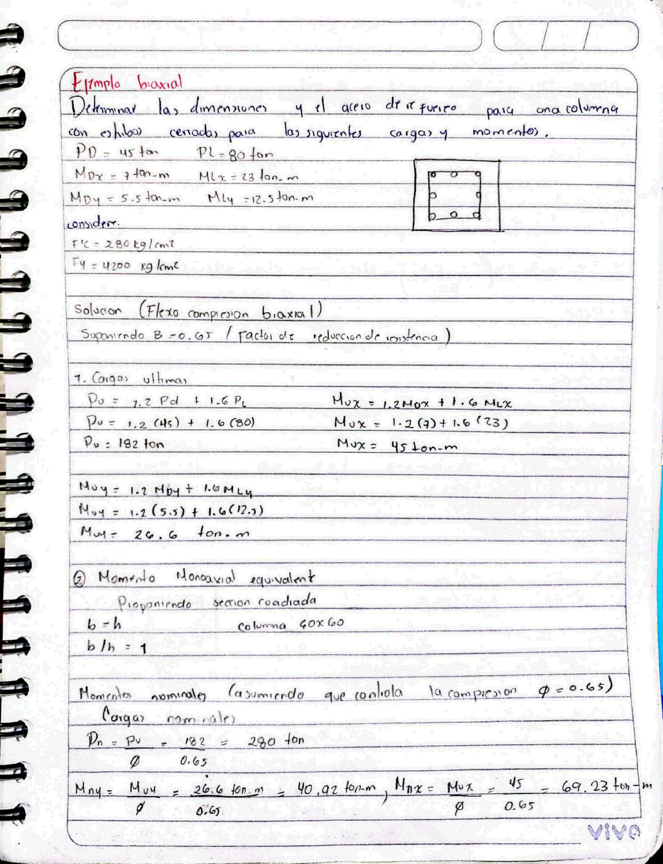 Ejmplo biaxial
Determinar las dimensiones y el acero de refuerzo para una columna
con estribos cerrados para las siguientes cargas y momentos.
PD = 45 ton PL = 80 ton
MDx = 7 ton-m MLx = 23 ton-m
MDy = 5.5 ton-m MLy = 12.5 ton-m
considere:
F'c = 280 kg/cm²
Fy = 4200 kg/cm²
Solucion (Flexo compresion biaxial)
Suponiendo B = 0.65 / Factor de reduccion de resistencia)
1. Cargas ultimas
Pu = 1.2 Pd + 1.6 PL Mux = 1.2 MDx + 1.6 MLx
Pu = 1.2 (45) + 1.6 (80) Mux = 1.2 (7) + 1.6 (23)
Pu = 182 ton Mux = 45 ton-m
Muy = 1.2 MDy + 1.6 MLy
Muy = 1.2 (5.5) + 1.6 (12.5)
Muy = 26.6 ton-m
② Momento Monoaxial equivalent
Proponiendo seccion cuadrada
b = h columna 60x60
b/h = 1
Momentos nominales (asumiendo que controla la compresion φ = 0.65)
Cargas nominales
Pn = Pu/φ = 182/0.65 = 280 ton
Mny = Muy/φ = 26.6 ton.m/0.65 = 40.92 ton-m, Mnx = Mux/φ = 45/0.65 = 69.23 ton-m
vivo